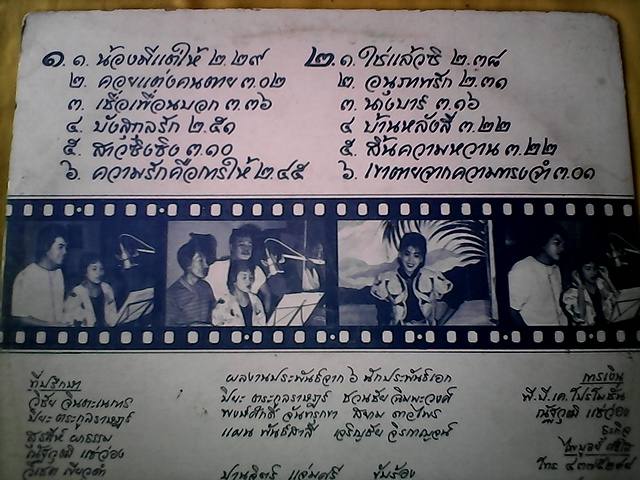 ๑. ๑. น้องมีแต่ให้ ๒.๒๙
๒. คอยแต่งคนตาย ๓.๐๒
๓. เชื่อเพื่อนบอก ๓.๓๖
๔. บังสุกุลรัก ๒.๕๑
๕. สาวซึ้งซิง ๓.๑๐
๖. ความรักคือการให้ ๒.๔๕
๒. ๑. ใช่แล้วซิ ๒.๓๘
๒. อนุภาพรัก ๒.๓๑
๓. นางบาร์ ๓.๑๖
๔ บ้านหลังสี่ ๓.๒๒
๕ สิ้นความหวาน ๓.๒๒
๖. เขาตายจากความทรงจำ ๓.๐๑
ที่ปรึกษา
วิชัย จินตะเนการ
ปิยะ ตระกูลราษฎร์
ณัฐวุฒิ แซ่ว่อง
วิเชต เขียวดำ
ผลงานประพันธ์จาก ๖ นักประพันธ์เอก
ปิยะ ตระกูลราษฎร์ ชวนชัย ฉิมพะวงศ์
พงษ์ศักดิ์ จันทรุกขา สยาม
แผน พันธ์สาลี เจริญชัย
ขับร้อง
การเงิน
พี.บี.เค. โปรโมชั่น
ณัฐวุฒิ แซ่ว่อง